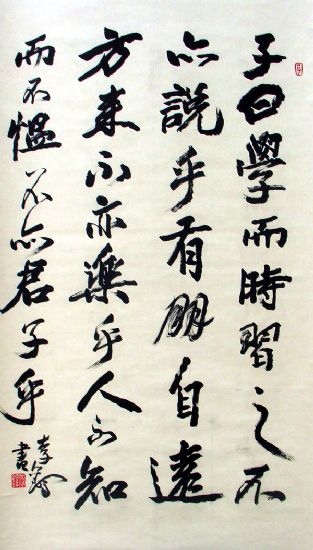 子曰學而時習之不
亦說乎有朋自遠
方來不亦樂乎人不知
而不愠不亦君子乎
李
書